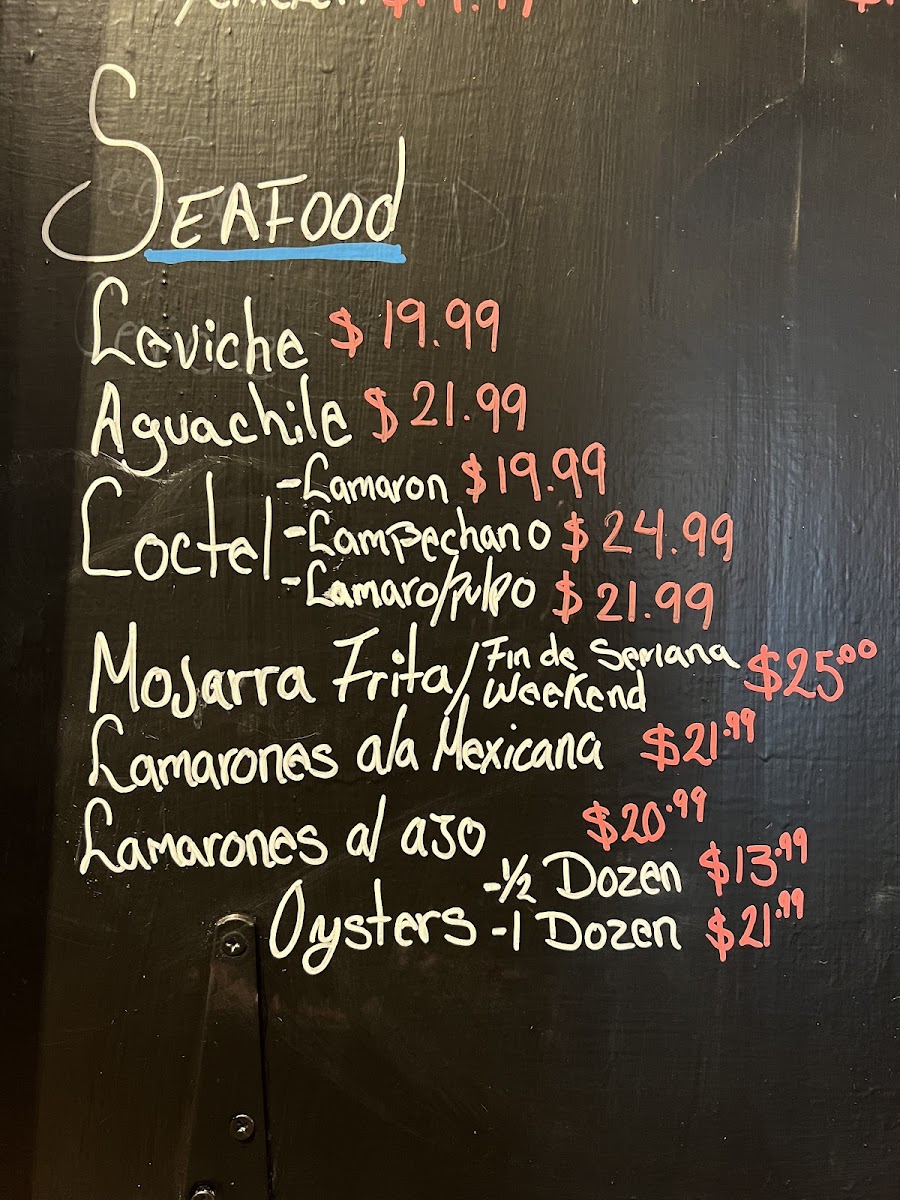 SEAFood
Ceviche $19.99
Aguachile $21.99
Coctel -Camaron $19.99
-Campechano $24.99
-Camaro/pulpo $21.99
Mojarra Frita/ Fin de Semana Weekend $25.00
Camarones a/a Mexicana $21.99
Camarones al ajo $20.99
Oysters -1/2 Dozen $13.99
-1 Dozen $21.99